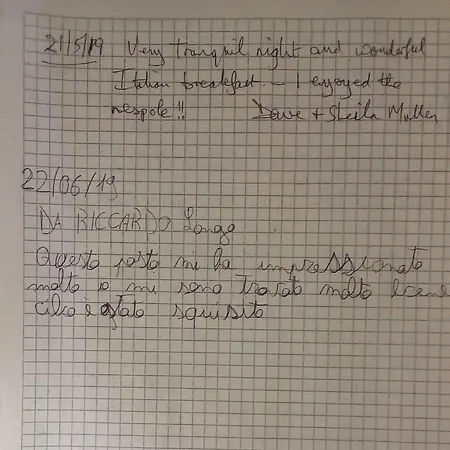 21/5/19 Very tranquil night and wonderful
Italian breakfast – I enjoyed the
nespole!! Dave + Sheila Mullen
22/06/19
DA RICCARDO Longo
Questo posto mi ha impressionato
molto io mi sono trovato molto bene
cibo è stato squisito